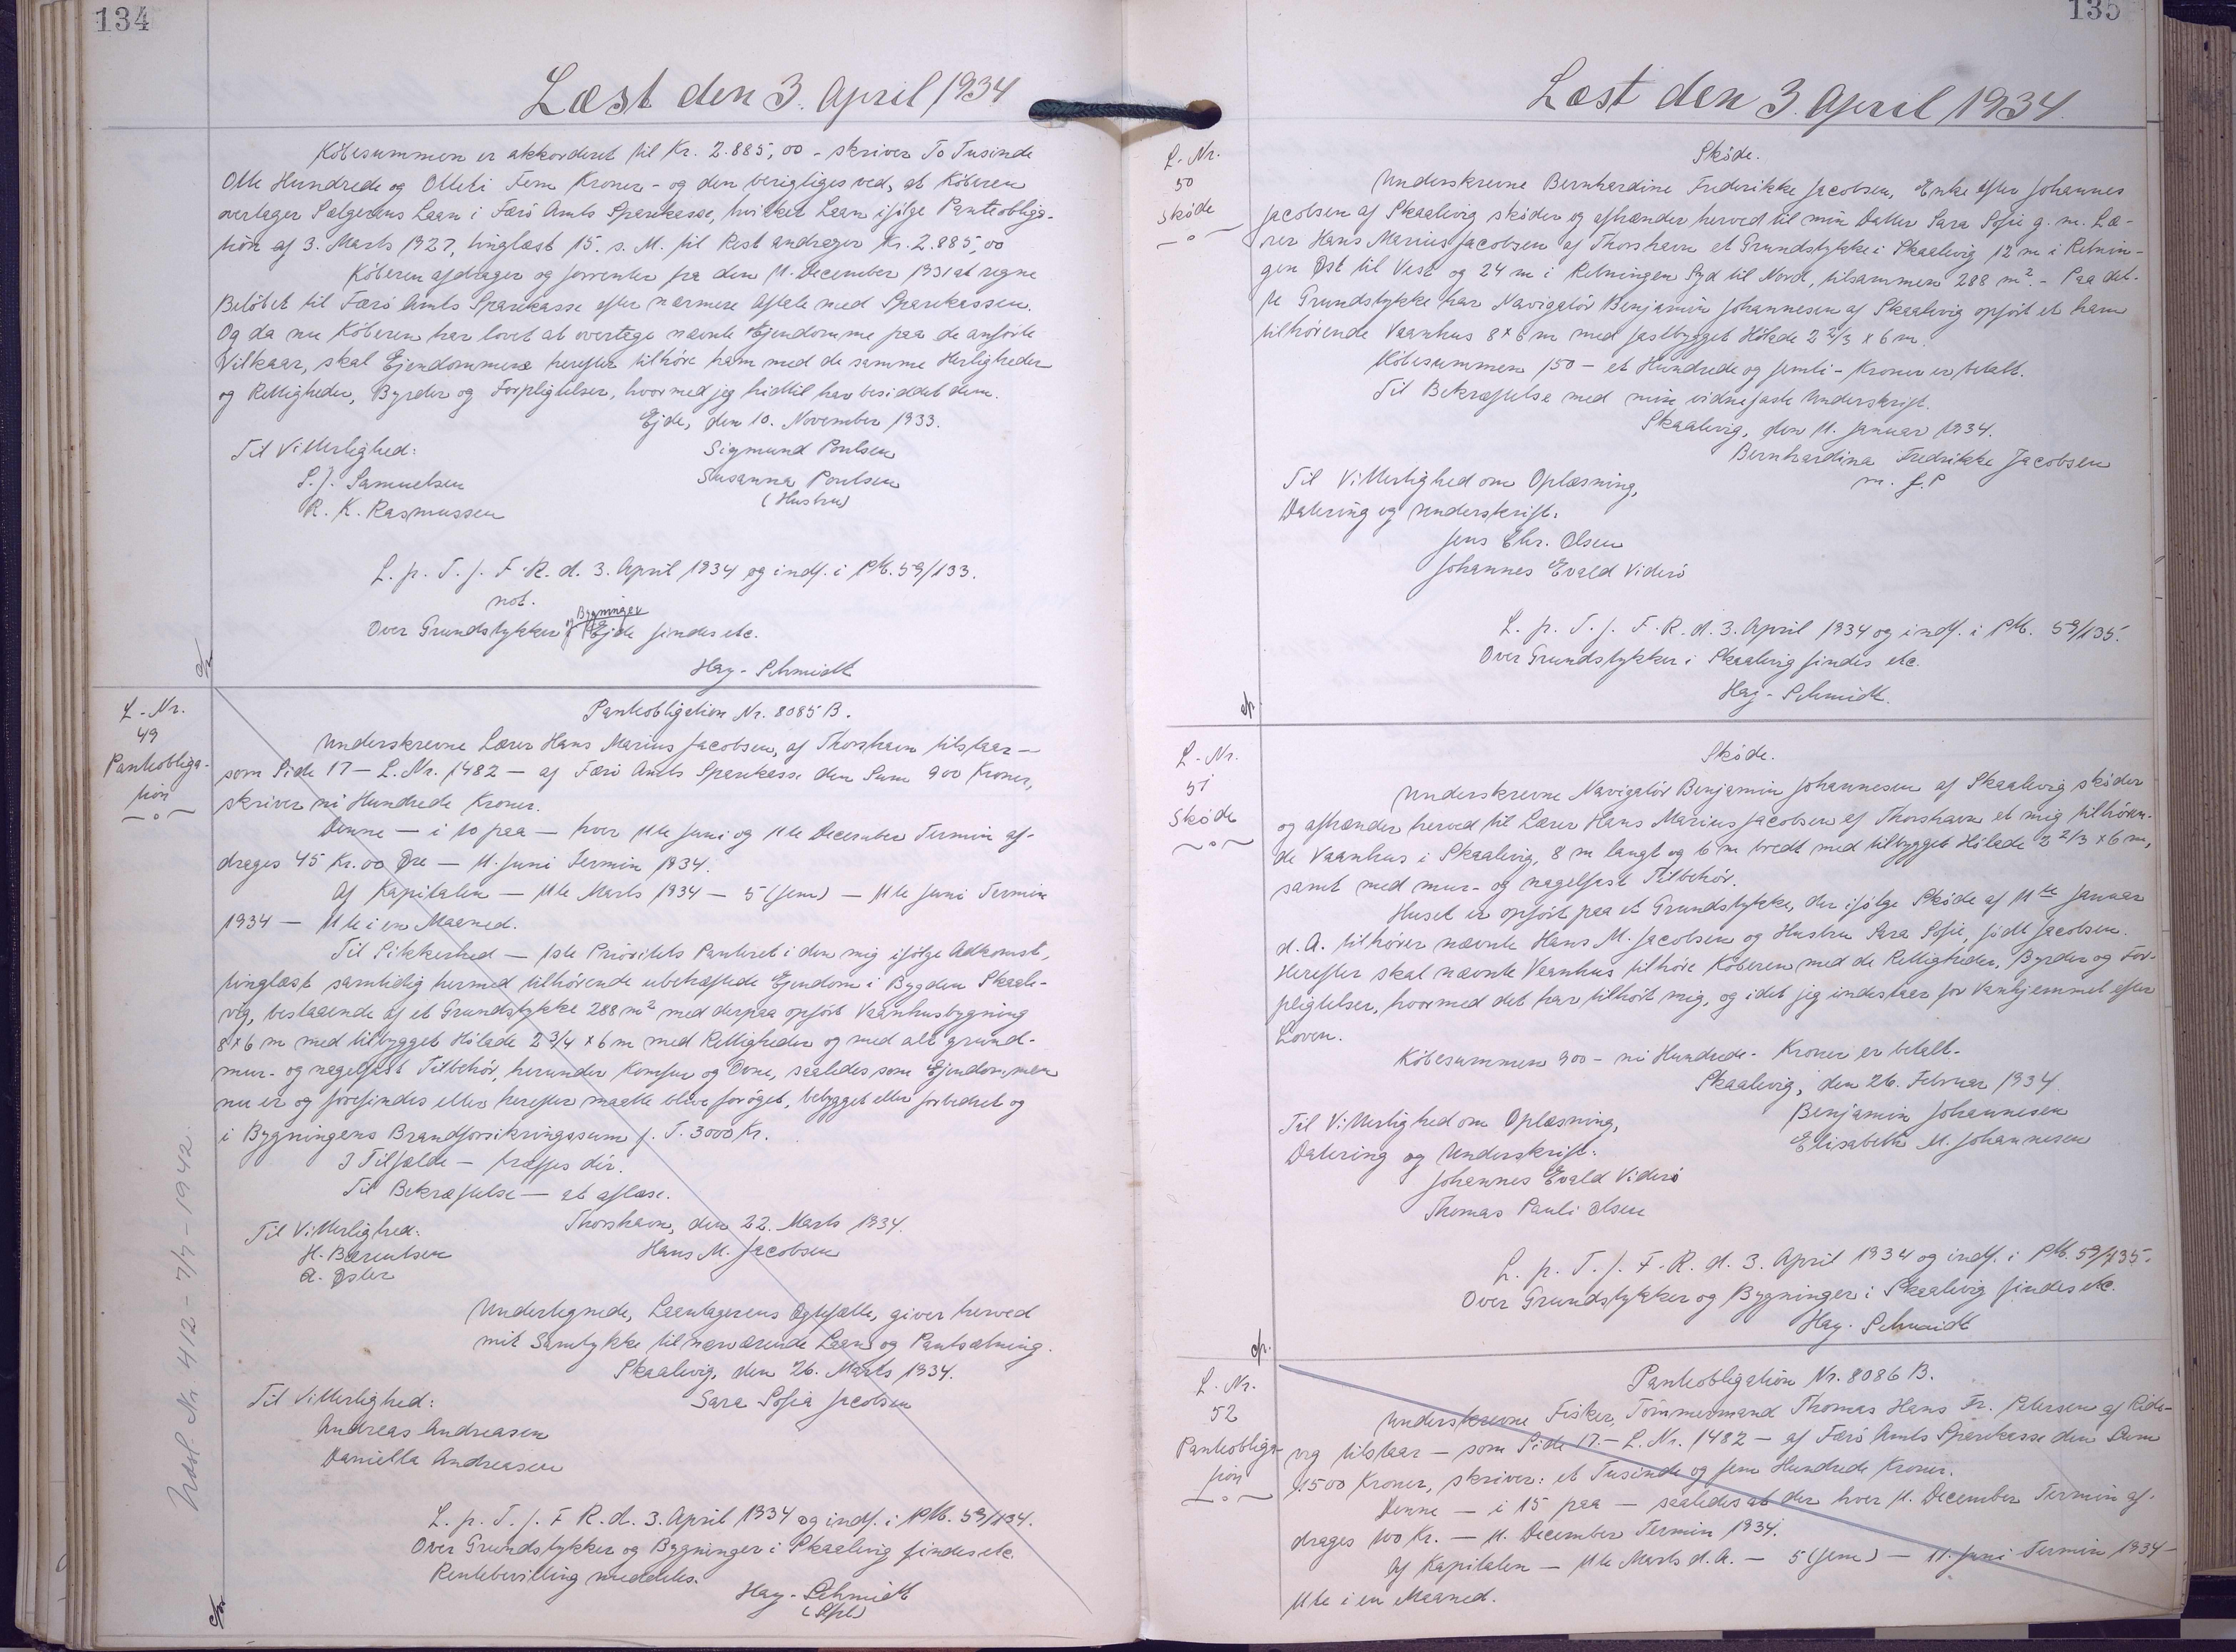 134
Læst den 3. April 1934
Köbesummen er akkorderet til Kr. 2.885,00 - skriver To Tusinde
Otte Hundrede og Otteti Fem Kroner - og den berigtiges ved, at Köberen
overtager Sælgerens Laan i Færö Amts Sparekasse, hvilket Laan ifölge Panteobliga-
tion af 3. Marts 1927, tinglæst 15. s. M. til Rest andrager Kr. 2.885,00
Köberen afdrager og forrenter fra den 11. December 1931 at regne
Belöbet til Færö Amts Sparekasse efter nærmere Aftale med Sparekassen.
Og da nu Köberen har lovet at overtage nævnte Ejendomme paa de anförte
Vilkaar, skal Ejendommene herefter tilhöre ham med de samme Herligheder
og Rettigheder, Byrder og Forpligtelser, hvormed jeg hidtil har besiddet dem.
Ejde, den 10. November 1933.
Til Vitterlighed:
Sigmund Poulsen
S. J. Samuelsen
Susanna Poulsen
(Hustru)
R. K. Rasmussen
L. p. T. f. F. R. d. 3. April 1934 og indf. i PM. 59/133.
not.
Over Grundstykker og Bygninger i Ejde findes etc.
Hay-Schmidt
L. Nr.
49
Panteobliga-
tion
Panteobligation Nr. 8085 B.
Underskrevne Lærer Hans Marius Jacobsen, af Thorshavn tilstaar —
som Side 17 — L. Nr. 1482 — af Færö Amts Sparekasse den Sum 900 Kroner,
skriver ni Hundrede Kroner.
Denne — i 10 paa — hver 11te Juni og 11te December Termin af-
drages 45 Kr. 00 Øre — 11. Juni Termin 1934.
Af Kapitalen — 11te Marts 1934 — 5 (fem) — 11te Juni Termin
1934 — 11te i en Maaned.
Til Sikkerhed — 1ste Prioritets Panteret i den mig ifölge Adkomst,
tinglæst samtidig hermed tilhörende ubehæftede Ejendom i Bygden Skaale-
vig, bestaaende af et Grundstykke 288 m² med derpaa opfört Vaanhusbygning
8 x 6 m med tilbygget Hölade 2 3/4 x 6 m med Rettigheder og med alt grund-
mur- og nagelfast Tilbehör, herunder Komfur og Ovne, saaledes som Ejendommen
nu er og forefindes eller herefter maatte blive foröget, bebygget eller forbedret og
i Bygningens Brandforsikringssum f. T. 3000 Kr.
I Tilfælde — træffes dér.
Til Bekræftelse — at aflæse.
Thorshavn, den 22. Marts 1934.
Til Vitterlighed:
Hans M. Jacobsen
H. Bærentsen
A. Øster
Undertegnede, Laantagerens Ægtefælle, giver herved
mit Samtykke til nærværende Laan og Pantsætning.
Skaalevig, den 26. Marts 1934.
Til Vitterlighed:
Sara Sofia Jacobsen
Andreas Andreasen
Daniella Andreasen
L. p. T. f. F. R. d. 3. April 1934 og indf. i PM. 59/134.
Over Grundstykker og Bygninger i Skaalevig findes etc.
Rentebevilling meddeles.
Hay-Schmidt
Udsl. Nr. 412 - 7/7 - 1942.
135
Læst den 3. April 1934.
L. Nr.
50
Sköde
Sköde.
Underskrevne Bernhardine Frederikke Jacobsen, Enke efter Johannes
Jacobsen af Skaalevig sköder og afhænder herved til min Datter Sara Sofie g. m. Læ-
rer Hans Marius Jacobsen af Thorshavn et Grundstykke i Skaalevig 12 m i Retnin-
gen Øst til Vest og 24 m i Retningen Syd til Nord, tilsammen 288 m². - Paa det-
te Grundstykke har Navigatör Benjamin Johannesen af Skaalevig opfört et ham
tilhörende Vaanhus 8 x 6 m med fastbygget Hölade 2 2/3 x 6 m.
Köbesummen 150 - et Hundrede og femti - Kroner er betalt.
Til Bekræftelse med min vidnefaste Underskrift.
Skaalevig, den 11. Januar 1934.
Bernhardina Fredrikke Jacobsen
m. f. P
Til Vitterlighed om Oplæsning,
Datering og Underskrift:
Jens Chr. Olsen
Johannes Evald Viderö
L. p. T. f. F. R. d. 3. April 1934 og indf. i PM. 59/135.
Over Grundstykker i Skaalevig findes etc.
Hay-Schmidt.
L. Nr.
51
Sköde
Sköde.
Underskrevne Navigatör Benjamin Johannesen af Skaalevig sköder
og afhænder herved til Lærer Hans Marius Jacobsen af Thorshavn et mig tilhören-
de Vaanhus i Skaalevig, 8 m langt og 6 m bredt med tilbygget Hölade 2 2/3 x 6 m,
samt med mur- og nagelfast Tilbehör.
Huset er opfört paa et Grundstykke, der ifölge Sköde af 11te Januar
d. A. tilhörer nævnte Hans M. Jacobsen og Hustru Sara Sofie, födt Jacobsen.
Herefter skal nævnte Vaanhus tilhöre Köberen med de Rettigheder, Byrder og For-
pligtelser, hvormed det har tilhört mig, og idet jeg indestaar for Vanhjemmel efter
Loven.
Köbesummen 900 - ni Hundrede - Kroner er betalt.
Skaalevig, den 26. Februar 1934.
Til Vitterlighed om Oplæsning,
Benjamin Johannesen
Datering og Underskrift:
Elisabeth M. Johannesen
Johannes Evald Viderö
Thomas Pauli Olsen
L. p. T. f. F. R. d. 3. April 1934 og indf. i PM. 59/135.
Over Grundstykker og Bygninger i Skaalevig findes etc.
Hay-Schmidt
L. Nr.
52
Panteobliga-
tion
Panteobligation Nr. 8086 B.
Underskrevne Fisker, Tömmermand Thomas Hans Fr. Petersen af Ride-
vig tilstaar — som Side 17. — L. Nr. 1482 — af Færö Amts Sparekasse den Sum
1500 Kroner, skriver: et Tusinde og fem Hundrede Kroner.
Denne — i 15 paa — saaledes at der hver 11. December Termin af-
drages 100 Kr. — 11. December Termin 1934.
Af Kapitalen — 11te Marts d. A. — 5 (fem) — 11. Juni Termin 1934 —
11te i en Maaned.